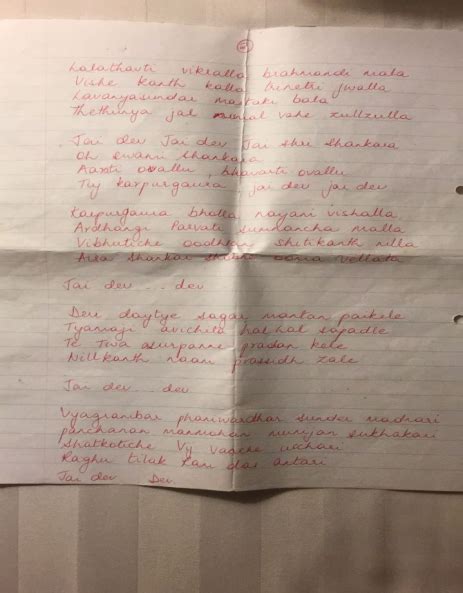 Lalathavti vikralla brahmandi mala
Vishe kanth kalla trinetri jwalla
Lavanyasundar mastaki bala
Thethunya jal nirmal vahe zullzulla
Jai dev Jai dev Jai shri shankara
Oh swami shankara
Aarti ovallu, bhavarti ovallu
Tuj karpurgaura jai dev jai dev
Karpurgaura bholla nayani vishalla
Ardhangi Parvati sumnancha malla
Vibhutiche oodhlan shitikanth nilla
Aisa Shankar shobhe ooma vellala
Jai dev ... dev
Devi daytye sagar mantan paikele
Tyamaji avichita halhal sapadle
Te Twa asurpanne pradan kele
Nillkanth naam prassidh zale
Jai dev ... dev
Vyagrambar phaniwardhar sunder madnari
panchanan manmohan munijan sukhakari
Shatkotiche Vij vaache ucchari
Raghu tilak Ram das antari
Jai dev Dev